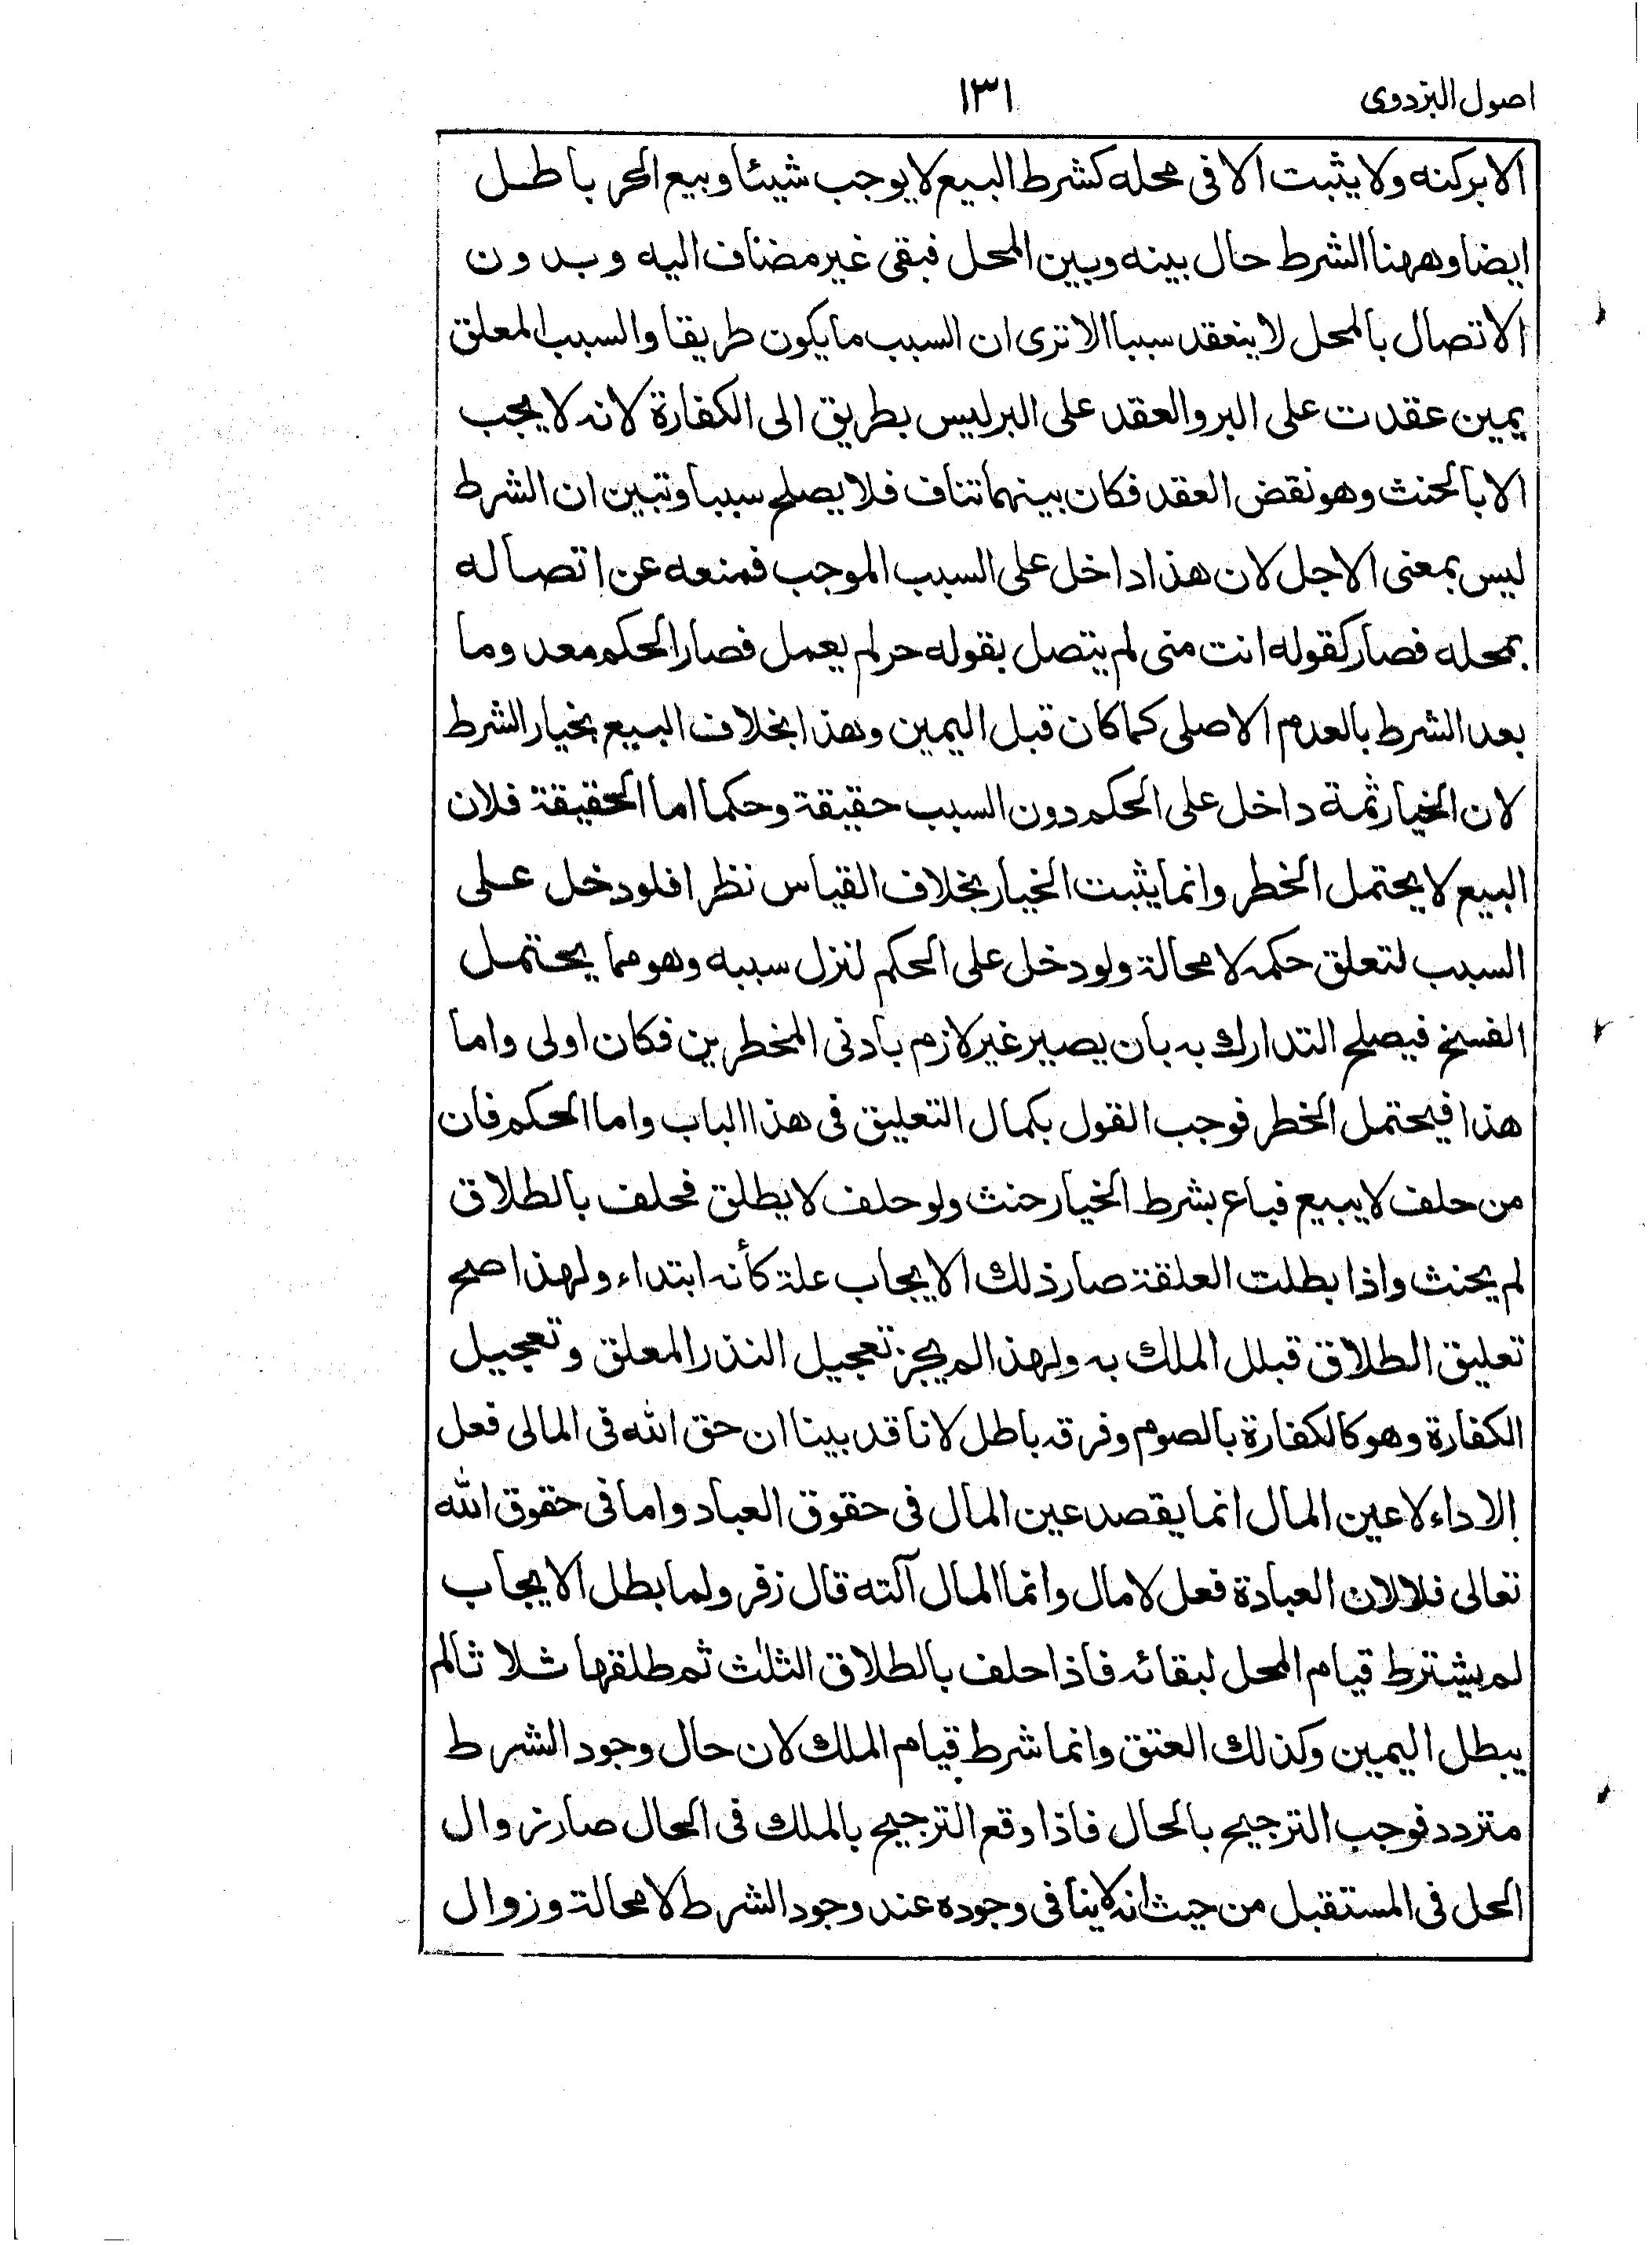 اصول البزدوی
۱۳۱
الا بركنه ولا يثبت الا فی محله كشرط البيع لا يوجب شيئا وبيع الحر باطل
ايضا وههنا الشرط حال بينه وبين المحل فبقی غير مضاف اليه وبدون
الاتصال بالمحل لا ينعقد سببا الا ترى ان السبب ما يكون طريقا والسبب المعلق
يمين عقدت على البر والعقد على البر ليس بطريق الى الكفارة لانه لا يجب
الا بالحنث وهو نقض العقد فكان بينهما تناف فلا يصلح سببا وتبين ان الشرط
ليس بمعنى الاجل لان هذا داخل على السبب الموجب فمنعه عن اتصاله
بمحله فصار كقوله انت منی لم يتصل بقوله حر لم يعمل فصار الحكم معدوما
بعد الشرط بالعدم الاصلی كما كان قبل اليمين وهذا بخلاف البيع بخيار الشرط
لان الخيار ثمة داخل على الحكم دون السبب حقيقة وحكما اما الحقيقة فلان
البيع لا يحتمل الخطر وانما يثبت الخيار بخلاف القياس نظرا فلو دخل على
السبب لتعلق حكمه لا محالة ولو دخل على الحكم لنزل سببه وهو مما يحتمل
الفسخ فيصلح التدارك به بان يصير غير لازم بادنى المخطرين فكان اولى واما
هذا فيحتمل الخطر فوجب القول بكمال التعليق فی هذا الباب واما الحكم فان
من حلف لا يبيع فباع بشرط الخيار حنث ولو حلف لا يطلق فحلف بالطلاق
لم يحنث واذا بطلت العلقة صار ذلك الايجاب علة كأنه ابتداء ولهذا صح
تعليق الطلاق قبلل الملك به ولهذا لم يجز تعجيل النذر المعلق وتعجيل
الكفارة وهو كالكفارة بالصوم وفرقه باطل لانا قد بينا ان حق الله فی المالی فعل
الاداء لا عين المال انما يقصد عين المال فی حقوق العباد واما فی حقوق الله
تعالى فلا لان العبادة فعل لا مال وانما المال آلته قال زفر ولما بطل الايجاب
لم يشترط قيام المحل لبقائه فاذا حلف بالطلاق الثلٰث ثم طلقها ثلاثا لم
يبطل اليمين وكذلك العتق وانما شرط قيام الملك لان حال وجود الشرط
متردد فوجب الترجيح بالحال فاذا وقع الترجيح بالملك فی الحال صار زوال
الحل فی المستقبل من حيث انه لا ينافی وجوده عند وجود الشرط لا محالة وزوال